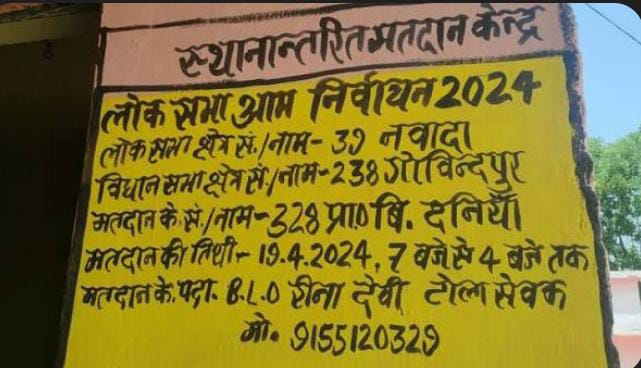 स्थानान्तरित मतदान केन्द्र
लोक सभा आम निर्वाचन 2024
लोक सभा क्षेत्र सं./नाम- 39 नवादा
विधान सभा क्षेत्र सं./नाम-238 गोविन्दपुर
मतदान के. सं./नाम-328 प्रा० बि. दनियाँ
मतदान की तिथी- 19.4.2024, 7 बजे से 4 बजे तक
मतदान के. पदा. B.L.O रीना देवी टोला सेवक
मो. 9155120329